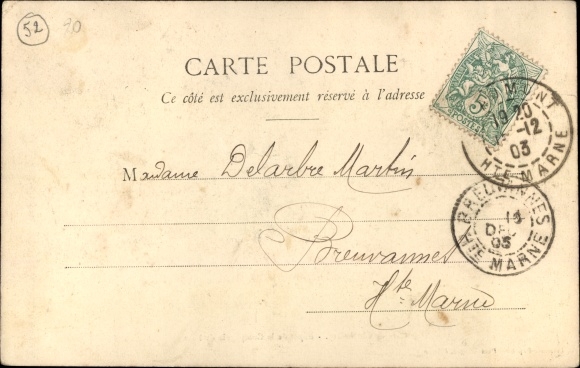 52
30
CARTE POSTALE
Ce côté est exclusivement réservé à l'adresse
5
POSTES
MONT
19 20
-12
03
HTE MARNE
Madame Delarbre Martin
BREUVANNES
DEC
03
HTE MARNE
Breuvannes
Hte Marne